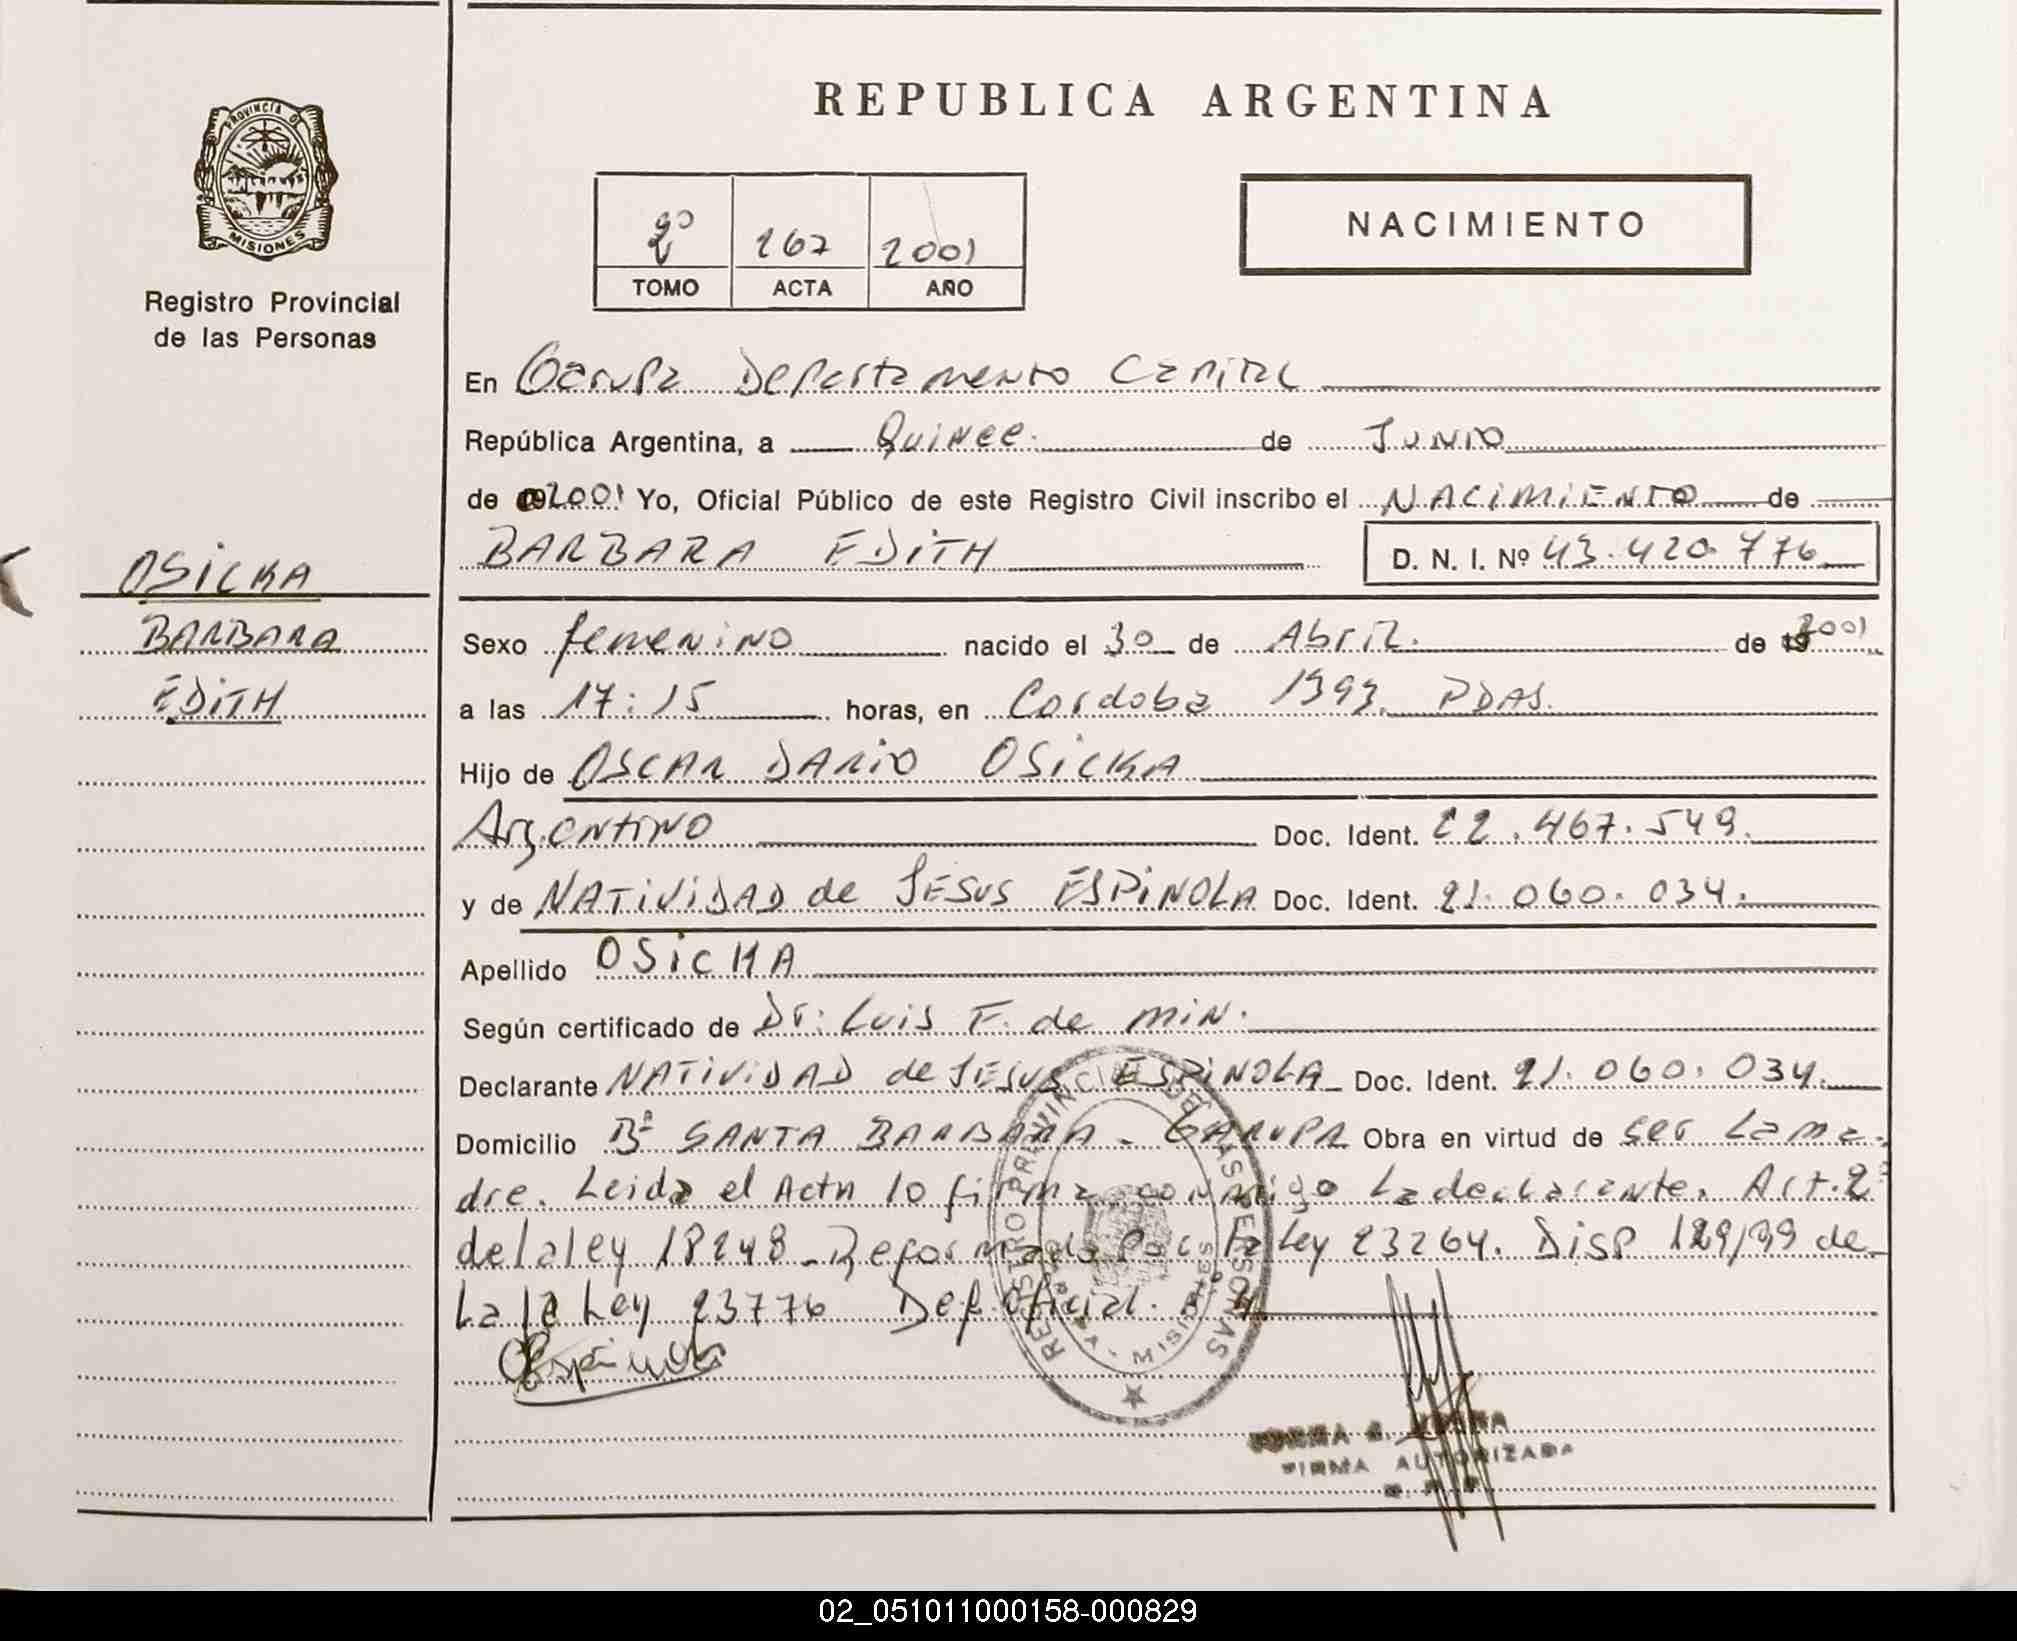 REPUBLICA ARGENTINA
PROVINCIA DE
MISIONES
Registro Provincial
de las Personas
2º 267 2001
TOMO ACTA AÑO
NACIMIENTO
En Garupa Departamento Capital
República Argentina, a Quince de Junio
de 2001 Yo, Oficial Público de este Registro Civil inscribo el NACIMIENTO de
BARBARA EDITH D. N. I. Nº 43.420.776
OSICKA
BARBARA
EDITH
Sexo femenino nacido el 30 de Abril. de 19 2001
a las 17:15 horas, en Cordoba 1393. PDAS.
Hijo de OSCAR DARIO OSICKA
Argentino Doc. Ident. 22.467.549.
y de NATIVIDAD de JESUS ESPINOLA Doc. Ident. 21.060.034.
Apellido OSICKA
Según certificado de Dr. Luis F. de min.
Declarante NATIVIDAD de JESUS ESPINOLA Doc. Ident. 21.060.034.
Domicilio Bº SANTA BARBARA - GARUPA Obra en virtud de ser La ma-
dre. Leida el Acta lo firma conmigo La declarante. Art. 2º
de la ley 18248 - Reformado Por La Ley 23264. Disp 129/99 de
La Ley 23776 Def. oficial.
Espinola
REGISTRO PROVINCIAL DE LAS PERSONAS
MISIONES
FIRMA AUTORIZADA
02_051011000158-000829